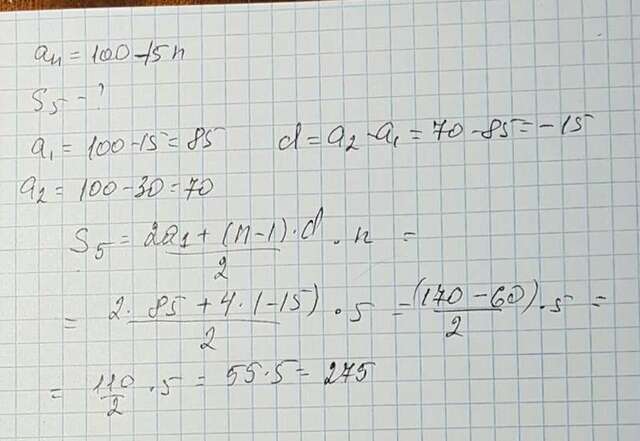 aₙ = 100 - 15n
S₅ - ?
a₁ = 100 - 15 = 85 d = a₂ - a₁ = 70 - 85 = -15
a₂ = 100 - 30 = 70
S₅ = (2a₁ + (n-1)·d)/2 · n =
= (2·85 + 4·(-15))/2 · 5 = (170 - 60)/2 · 5 =
= 110/2 · 5 = 55·5 = 275